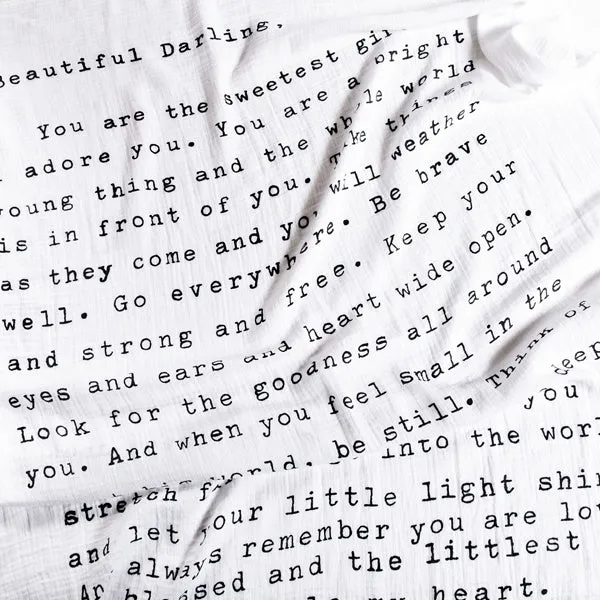 Beautiful Darling,
You are the sweetest
adore you. You are a bright
young thing and the whole world
is in front of you. Take things
as they come and you will weather
well. Go everywhere. Be brave
and strong and free. Keep your
eyes and ears and heart wide open.
Look for the goodness all around
you. And when you feel small in the
world, be still. Think of
deep
you
stretch into the
and let your little light
always remember you are
and the littlest
my heart.